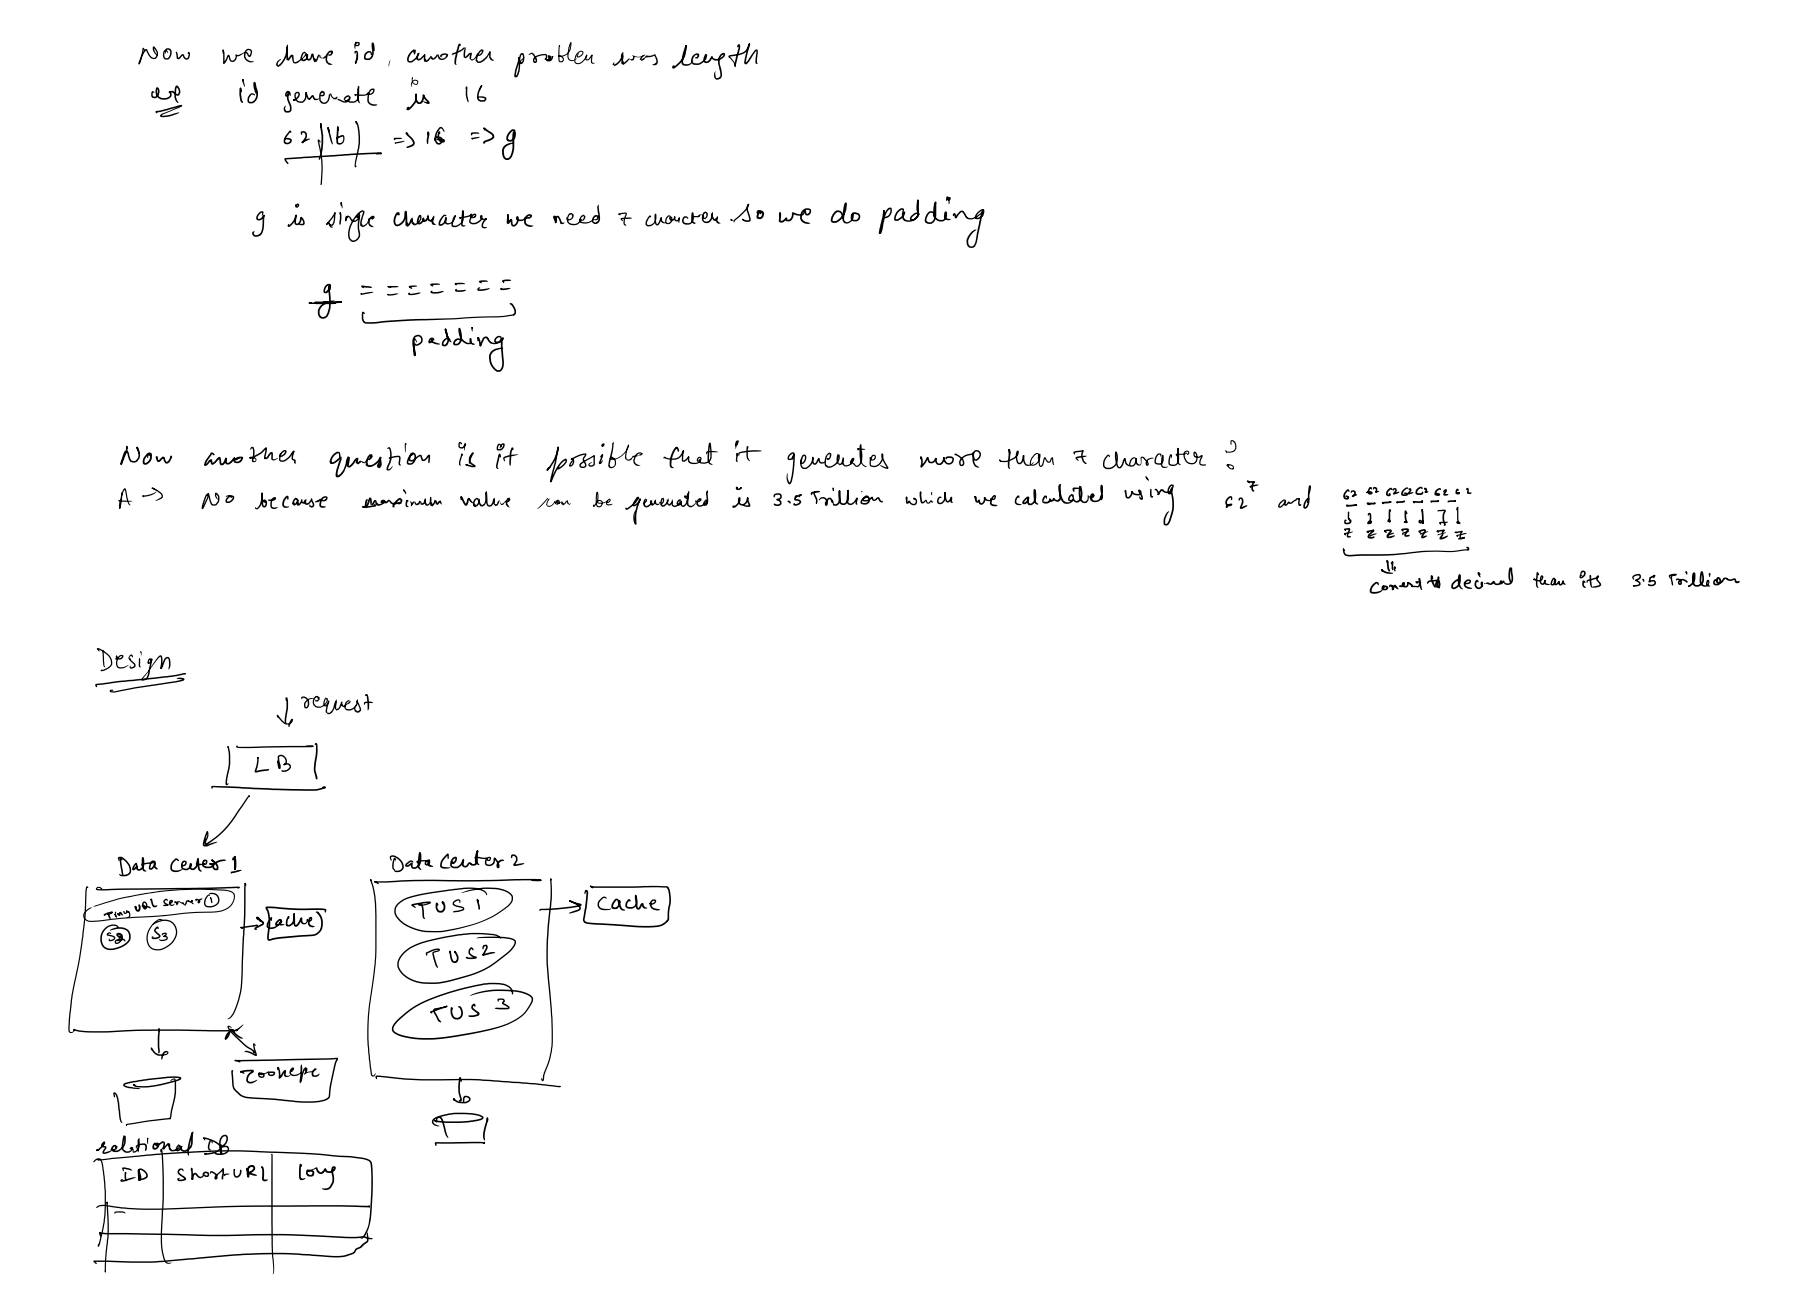 Now we have id, another problem was length
id generate is 16
62 16 => 16 => g
g is single character we need 7 character so we do padding
g = = = = = = =
padding
Now another question is it possible that it generates more than 7 character ?
A → No because maximum value can be generated is 3.5 Trillion which we calculated using 62^7 and
62 62 62 62 62 62 62
z z z z z z z
convert to decimal than its 3.5 Trillion
Design
↓ request
LB
Data Center 1
Data Center 2
Tiny URL server 1
S2 S3
cache
TUS 1
TUS 2
TUS 3
Cache
zookepe
relational DB
ID Short URL long